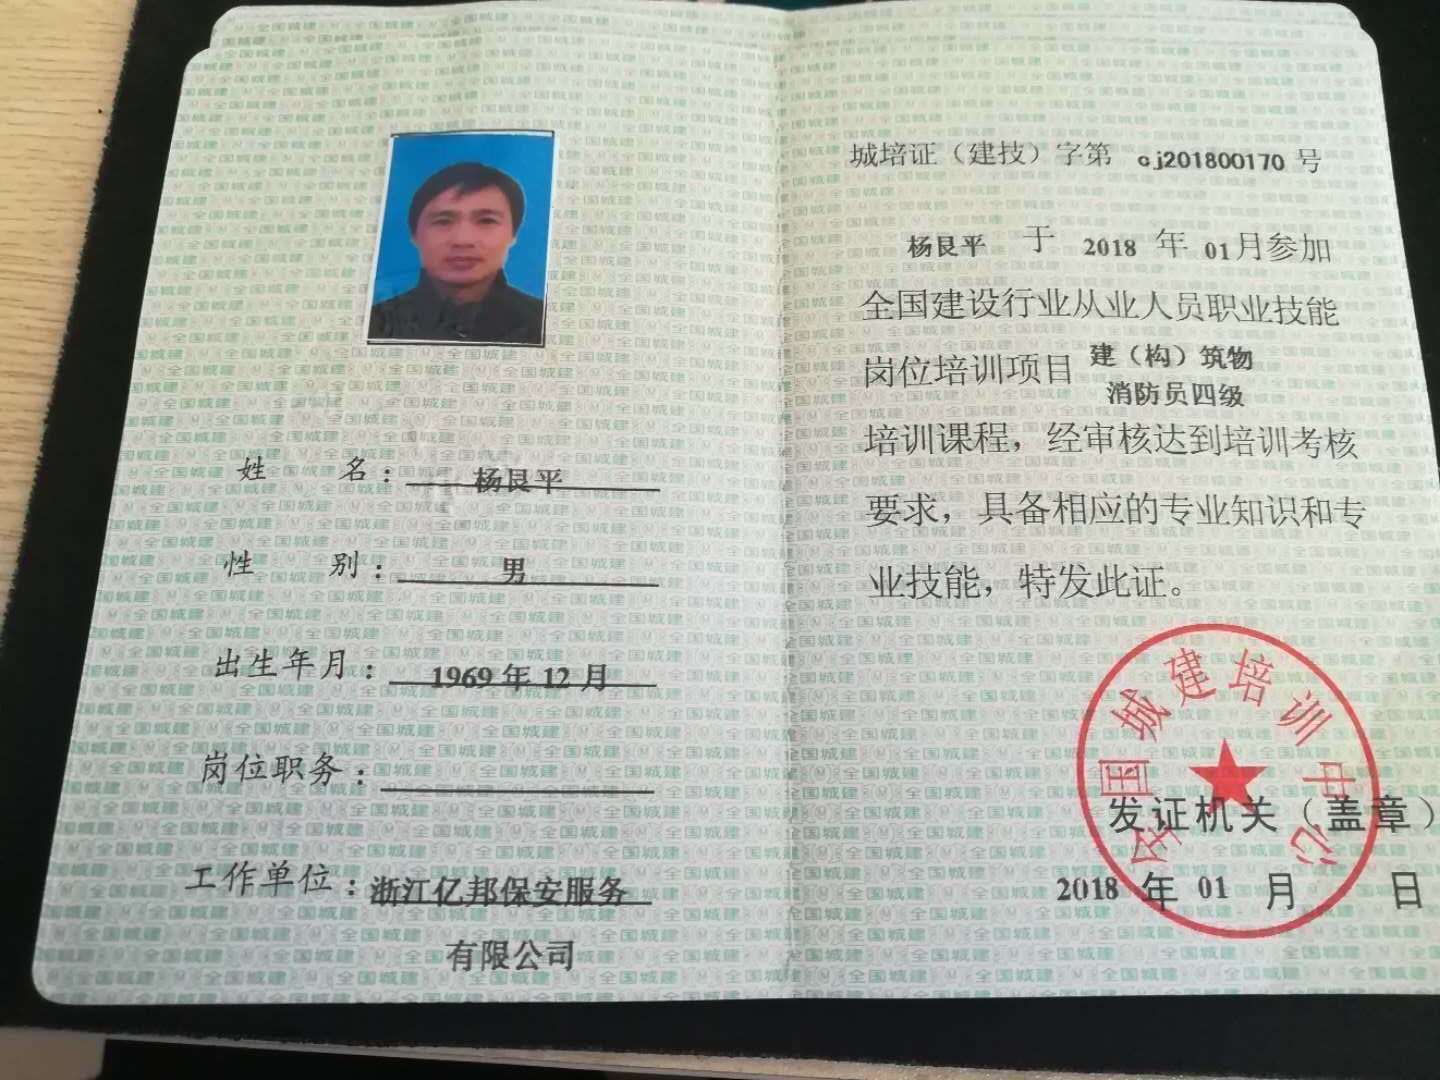 姓 名：杨艮平
性 别：男
出生年月：1969年12月
岗位职务：
工作单位：浙江亿邦保安服务
有限公司
城培证（建技）字第 cj201800170 号
杨艮平 于 2018 年 01月参加
全国建设行业从业人员职业技能
岗位培训项目 建（构）筑物
消防员四级
培训课程，经审核达到培训考核
要求，具备相应的专业知识和专
业技能，特发此证。
全国城建培训中心
发证机关（盖章）
2018 年 01 月 日